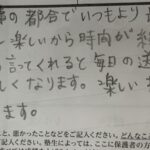 の都合でいつもより
楽しいから時間が
言ってくれると毎日の送
くなります。楽しい
ます。
と、悪かったことなどをご記入ください。どんなこ
ご記入ください。塾生によっては、ここに保護者の方